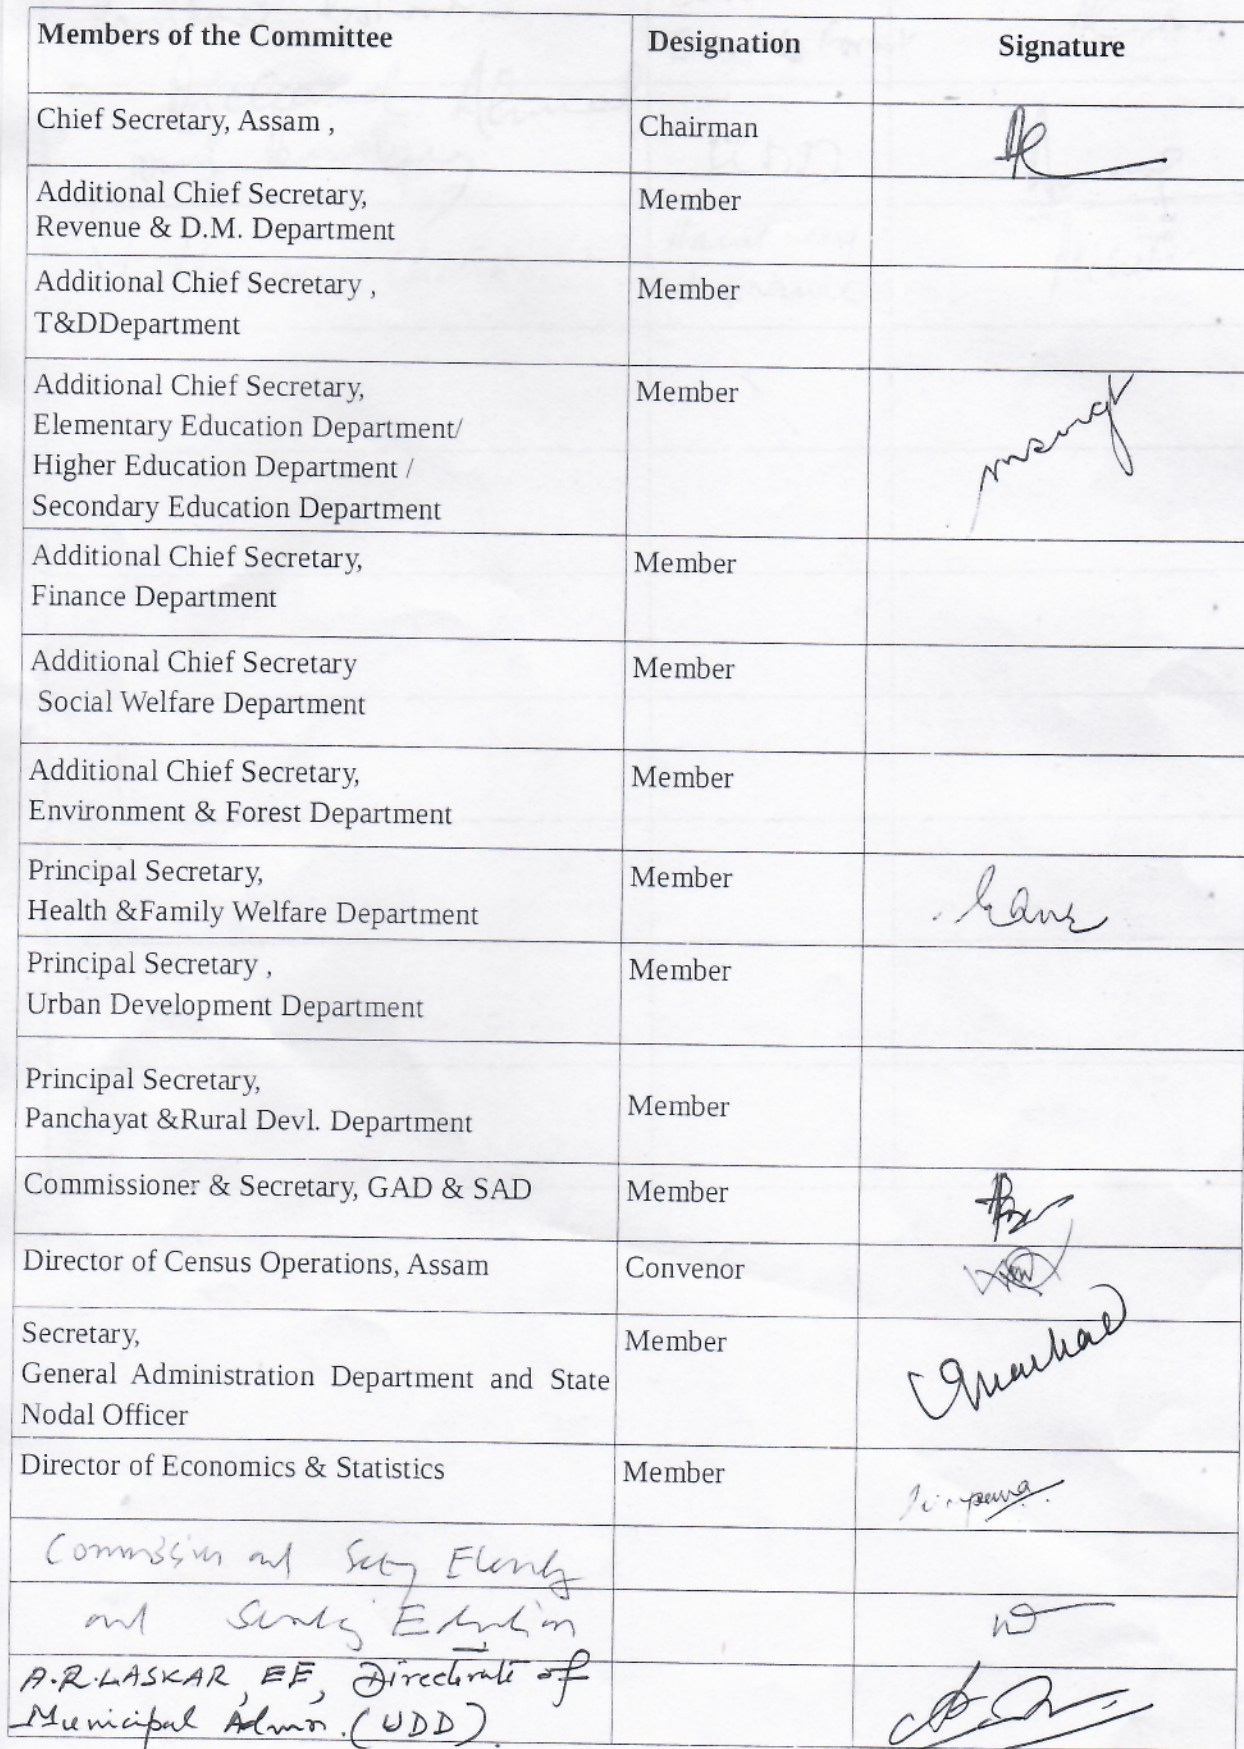 Members of the Committee Designation Signature
Chief Secretary, Assam , Chairman
Additional Chief Secretary, Member
Revenue & D.M. Department
Additional Chief Secretary , Member
T&DDepartment
Additional Chief Secretary, Member
Elementary Education Department/
Higher Education Department /
Secondary Education Department
Additional Chief Secretary, Member
Finance Department
Additional Chief Secretary Member
Social Welfare Department
Additional Chief Secretary, Member
Environment & Forest Department
Principal Secretary, Member
Health &Family Welfare Department
Principal Secretary , Member
Urban Development Department
Principal Secretary,
Panchayat &Rural Devl. Department Member
Commissioner & Secretary, GAD & SAD Member
Director of Census Operations, Assam Convenor
Secretary, Member
General Administration Department and State
Nodal Officer
Director of Economics & Statistics Member
and
and Education
A.R.LASKAR, EE, Directorate of
Municipal Admn. (UDD).